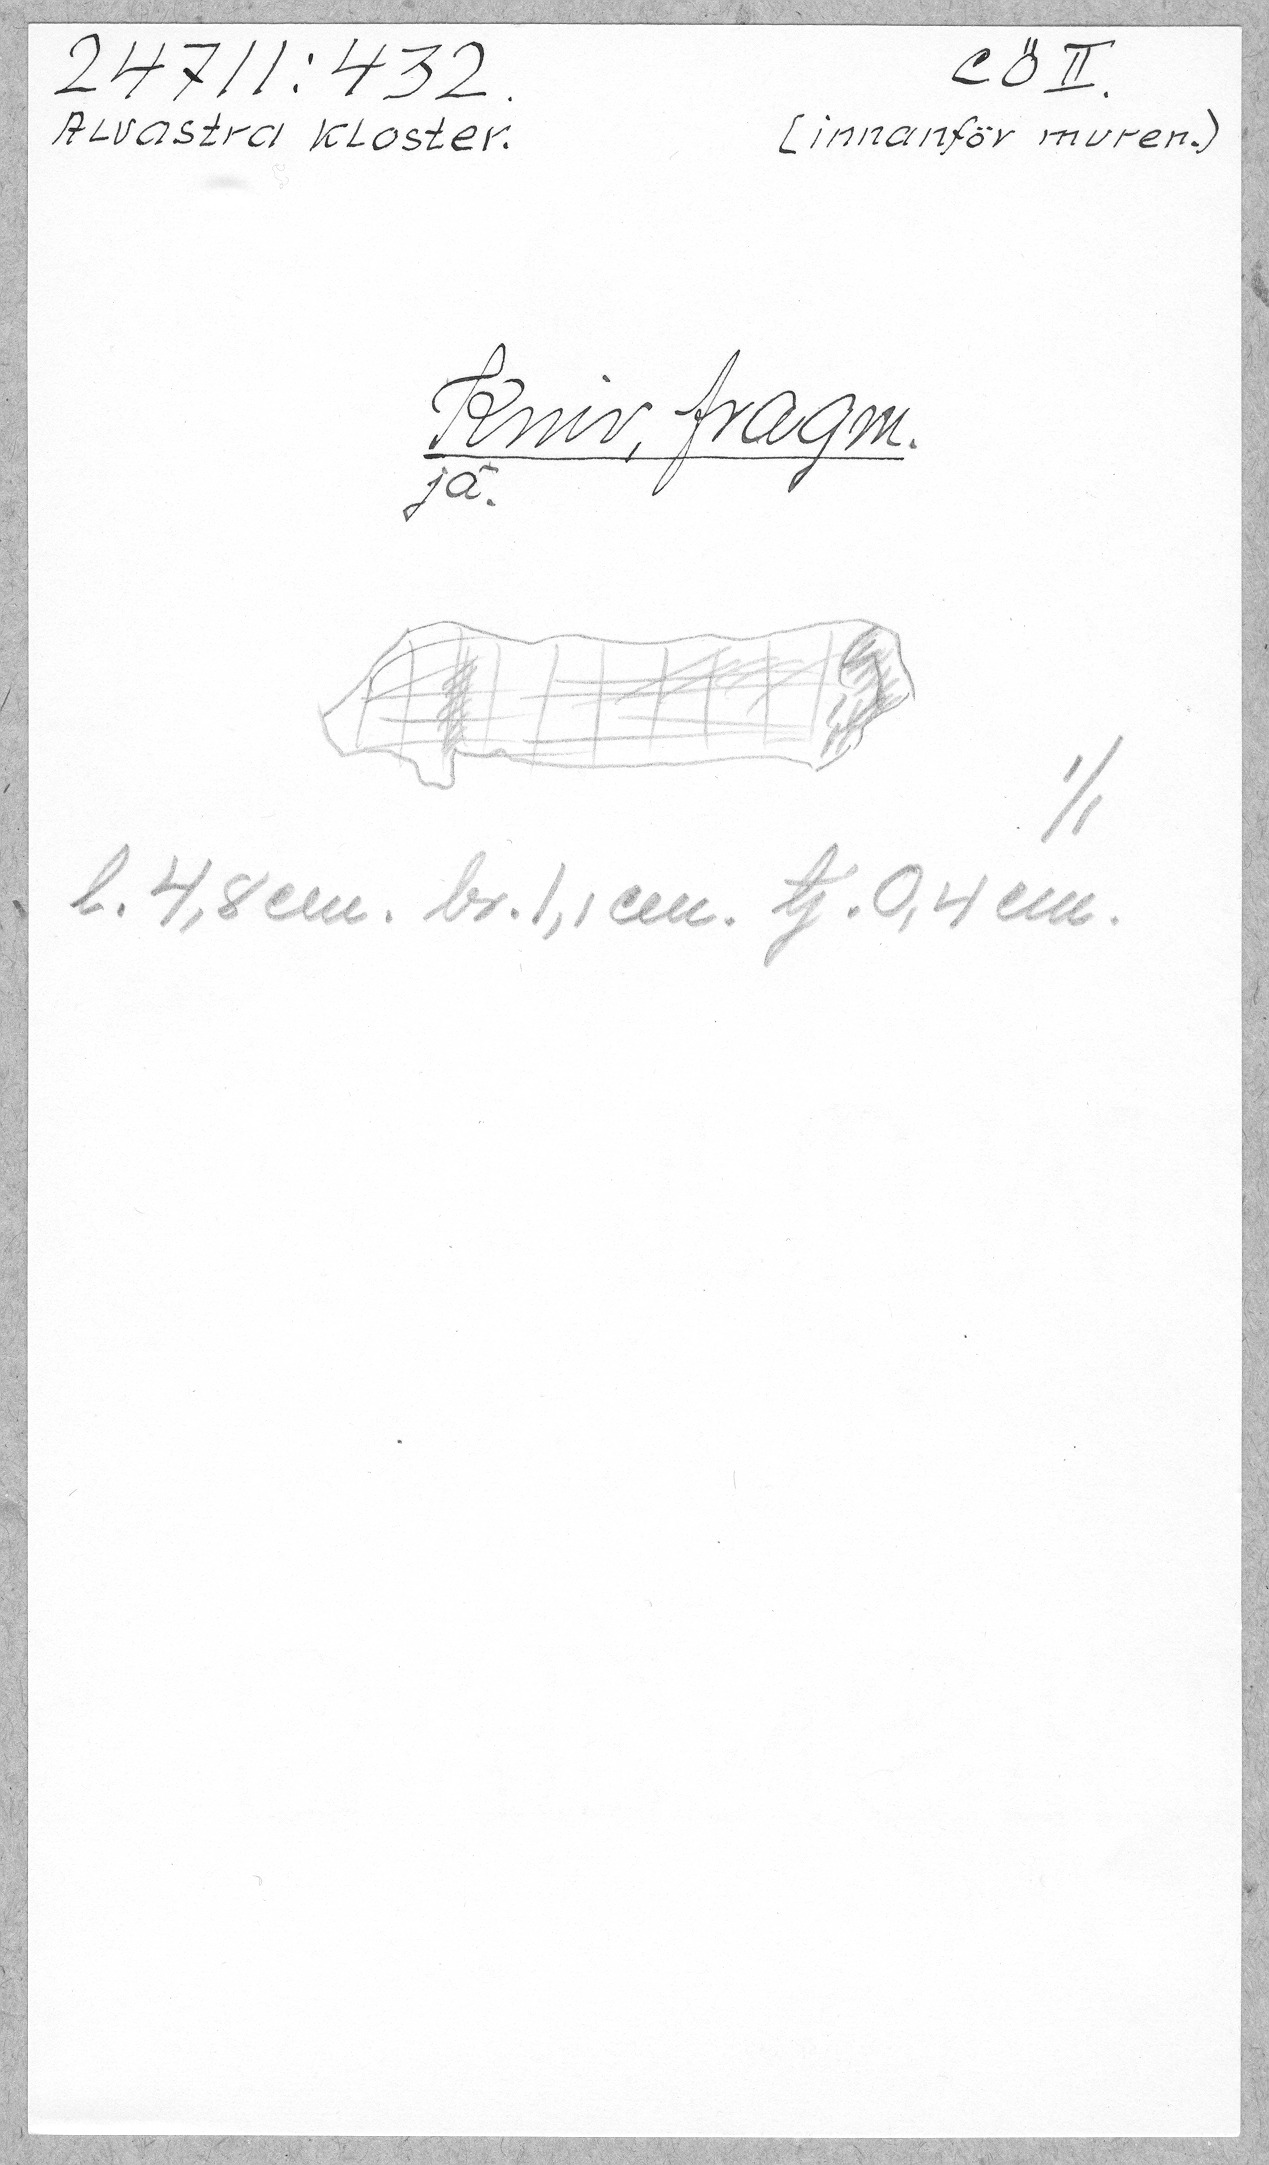 24711:432.
CÖ II.
Alvastra kloster.
(innanför muren.)
Kniv, fragm.
jä.
1/1
l. 4,8 cm. br. 1,1 cm. tj. 0,4 cm.